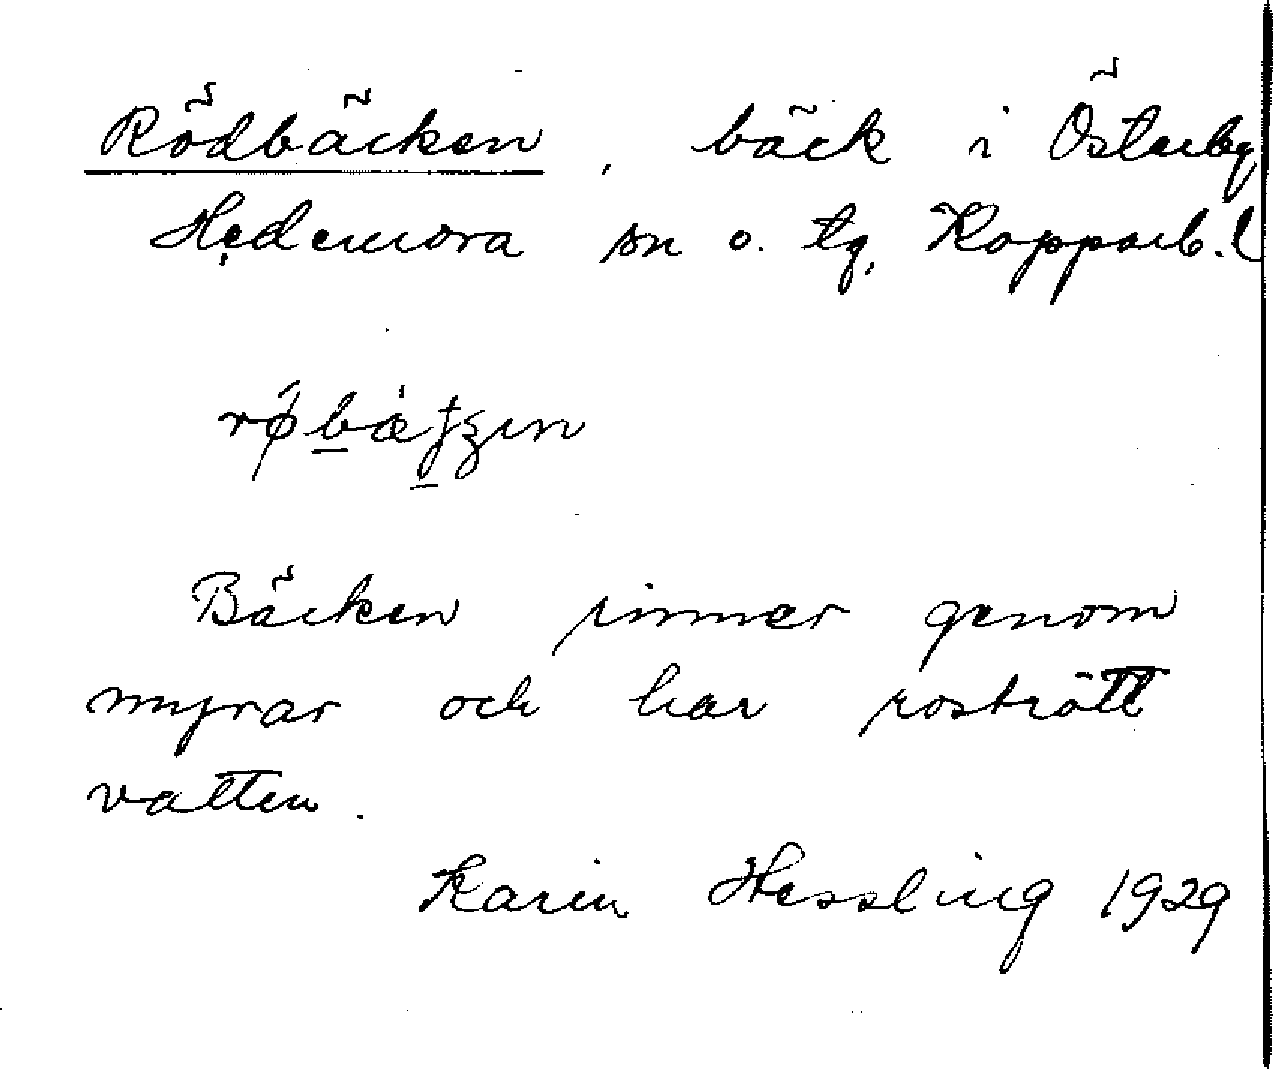 Rödbäcken, bäck i Österby
Hedemora sn o. tg, Kopparb. l
Bäcken rinner genom
myrar och har rostrött
vatten.
Karin Hessling 1929